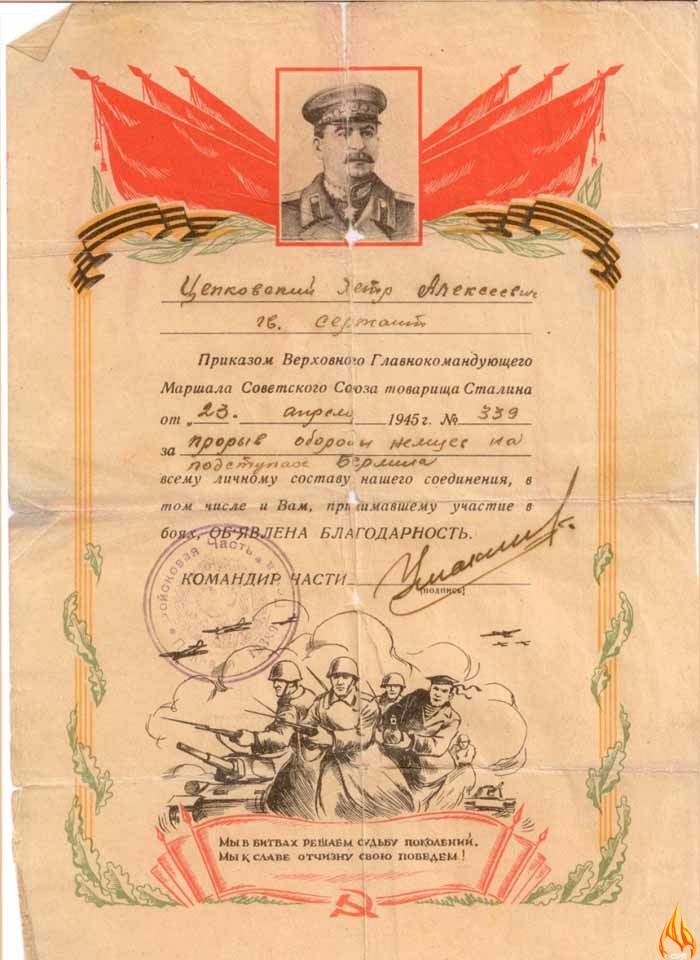 Цепковский Петр Алексеевич
гв. сержант
Приказом Верховного Главнокомандующего
Маршала Советского Союза товарища Сталина
от „23. апреля 1945 г. № 339
за прорыв обороны немцев на
подступах Берлина
всему личному составу нашего соединения, в
том числе и Вам, принимавшему участие в
боях, ОБ'ЯВЛЕНА БЛАГОДАРНОСТЬ.
Войсковая Часть
КОМАНДИР ЧАСТИ
(подпись)
Мы в битвах решаем судьбу поколений,
Мы к славе отчизну свою поведем!